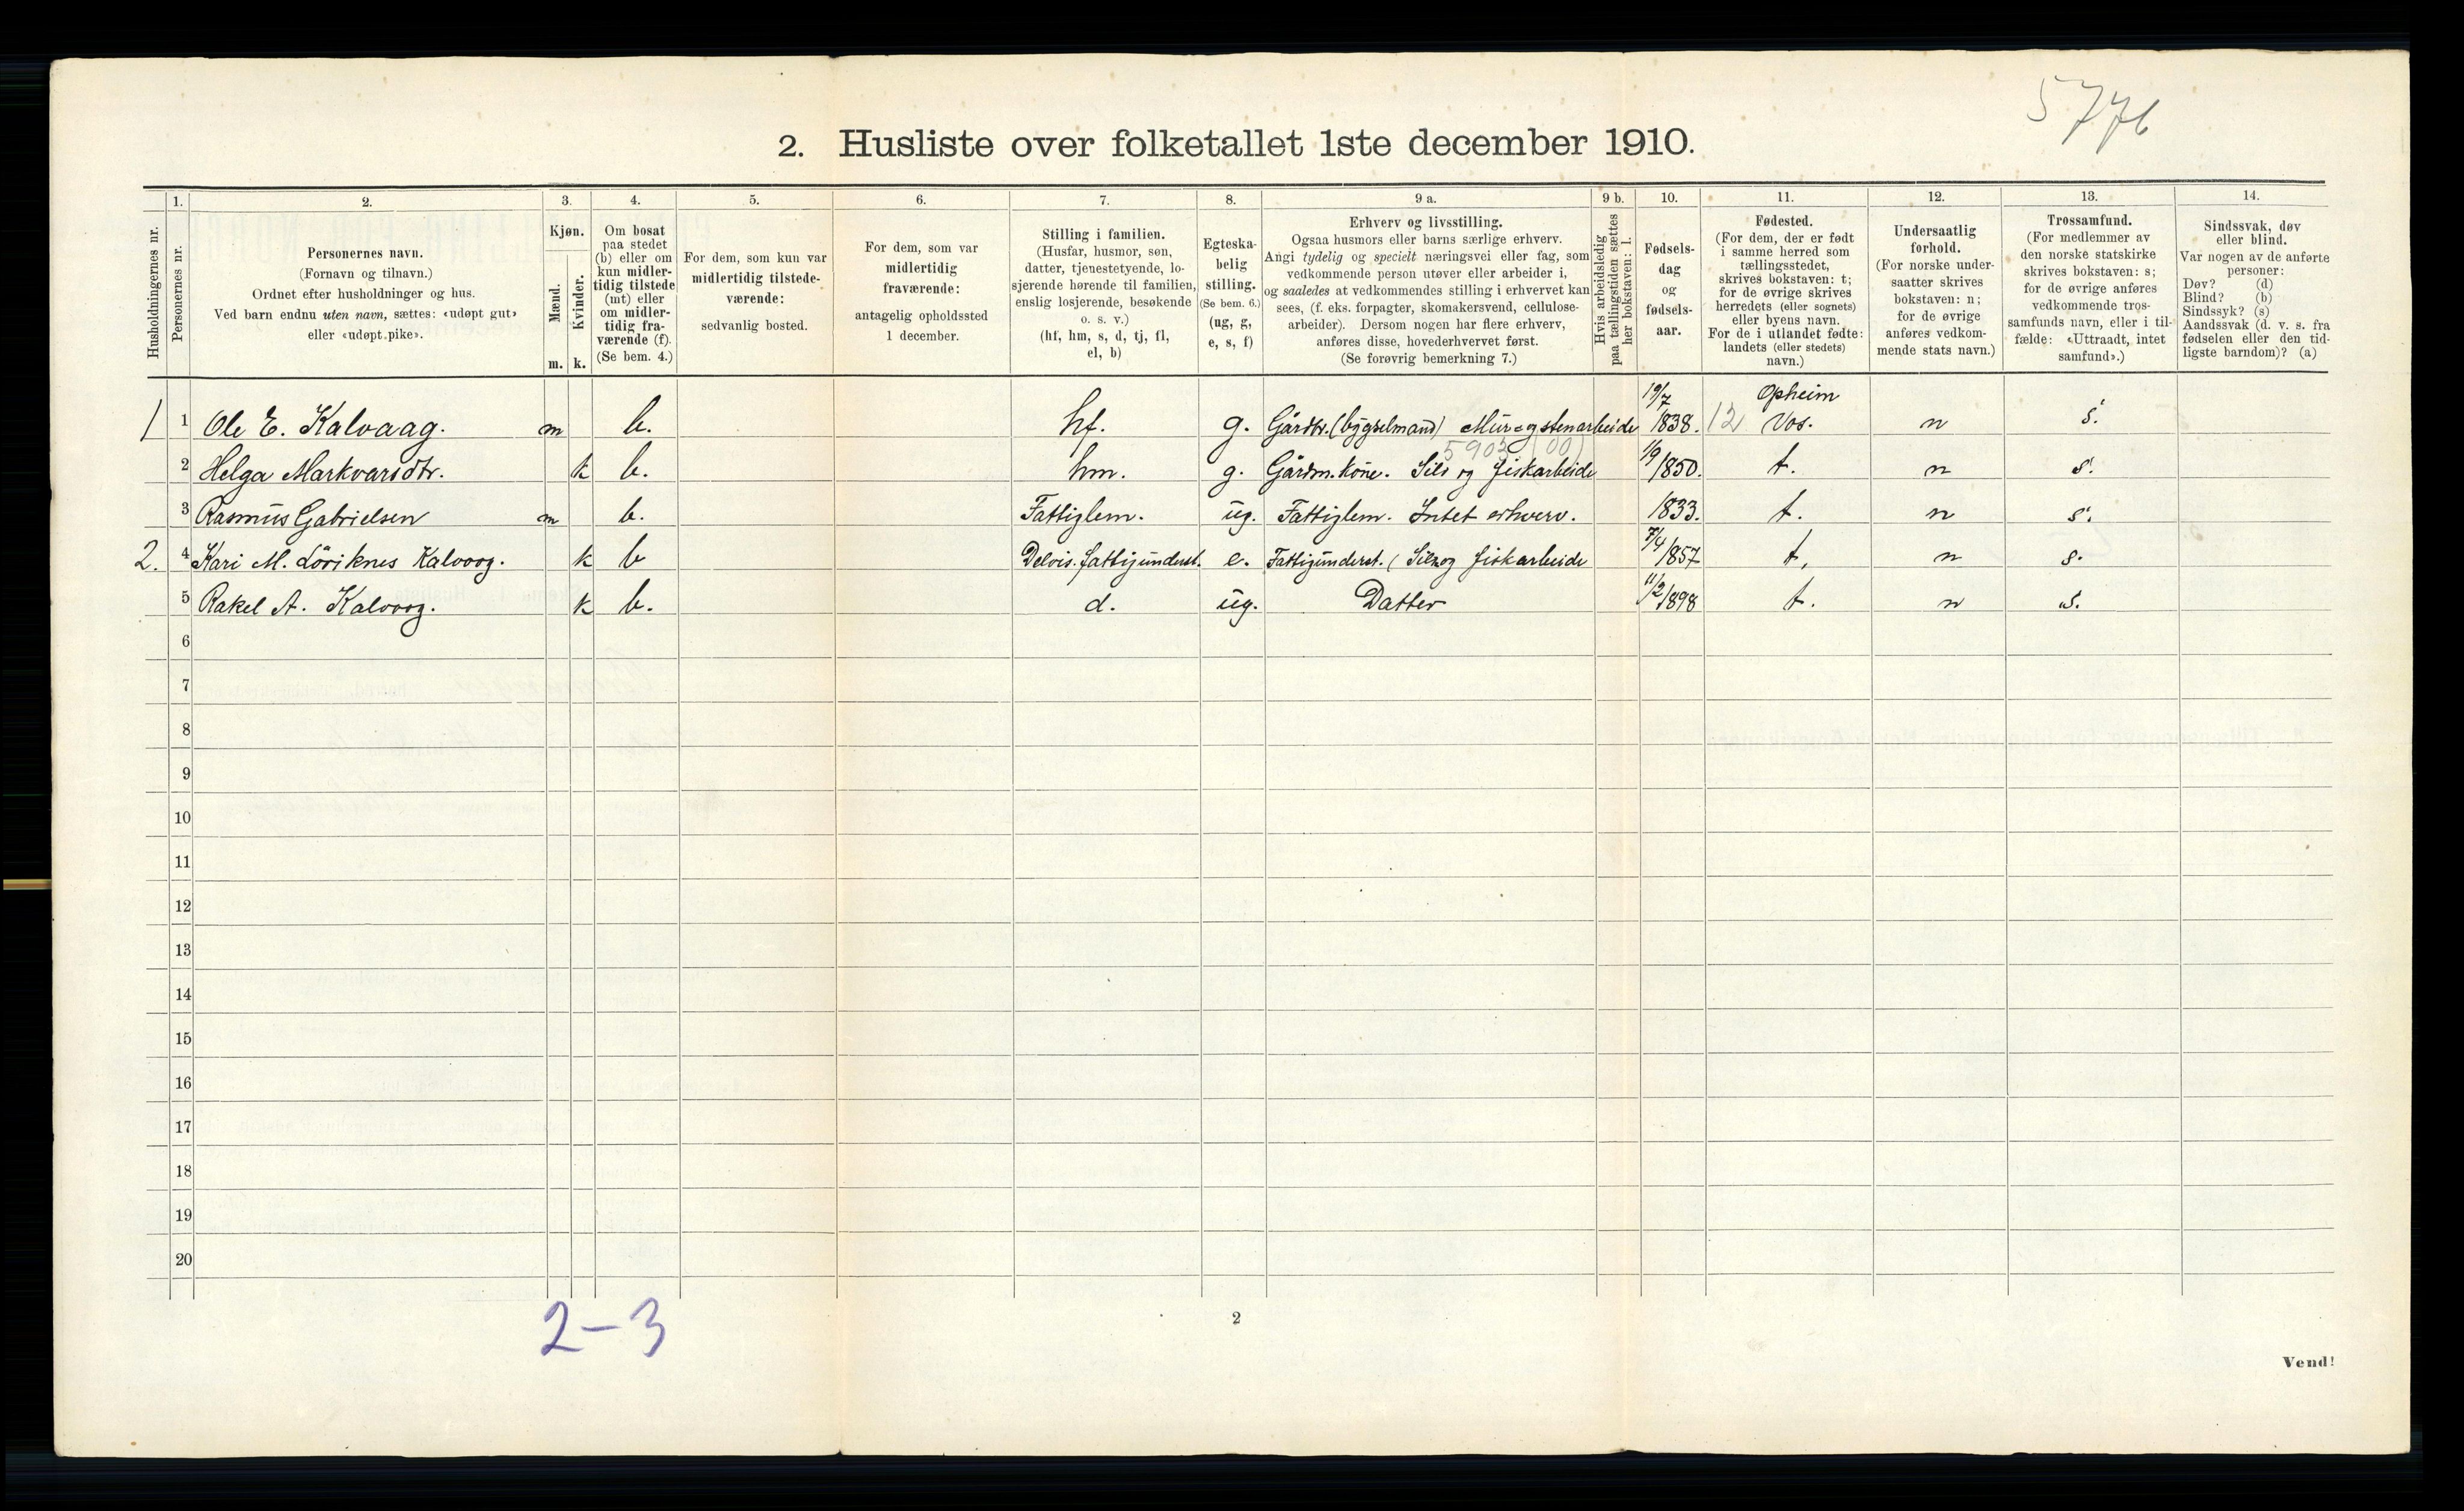 5776
2. Husliste over folketallet 1ste december 1910.
1. 2. 3. 4. 5. 6. 7. 8. 9 a. 9 b. 10. 11. 12. 13. 14.
Husholdningernes nr.
Personernes nr.
Personernes navn.
(Fornavn og tilnavn.)
Ordnet efter husholdninger og hus.
Ved barn endnu uten navn, sættes: «udøpt gut»
eller «udøpt pike».
Kjøn.
Mænd.
Kvinder.
m. k.
Om bosat
paa stedet
(b) eller om
kun midler-
tidig tilstede
(mt) eller
om midler-
tidig fra-
værende (f).
(Se bem. 4.)
For dem, som kun var
midlertidig tilstede-
værende:
sedvanlig bosted.
For dem, som var
midlertidig
fraværende:
antagelig opholdssted
1 december.
Stilling i familien.
(Husfar, husmor, søn,
datter, tjenestetyende, lo-
sjerende hørende til familien,
enslig losjerende, besøkende
o. s. v.)
(hf, hm, s, d, tj, fl,
el, b)
Egteska-
belig
stilling.
(Se bem. 6.)
(ug, g,
e, s, f)
Erhverv og livsstilling.
Ogsaa husmors eller barns særlige erhverv.
Angi tydelig og specielt næringsvei eller fag, som
vedkommende person utøver eller arbeider i,
og saaledes at vedkommendes stilling i erhvervet kan
sees, (f. eks. forpagter, skomakersvend, cellulose-
arbeider). Dersom nogen har flere erhverv,
anføres disse, hovederhvervet først.
(Se forøvrig bemerkning 7.)
Hvis arbeidsledig
paa tællingstiden sættes
her bokstaven: l.
Fødsels-
dag
og
fødsels-
aar.
Fødested.
(For dem, der er født
i samme herred som
tællingsstedet,
skrives bokstaven: t;
for de øvrige skrives
herredets (eller sognets)
eller byens navn.
For de i utlandet fødte:
landets (eller stedets)
navn.)
Undersaatlig
forhold.
(For norske under-
saatter skrives
bokstaven: n;
for de øvrige
anføres vedkom-
mende stats navn.)
Trossamfund.
(For medlemmer av
den norske statskirke
skrives bokstaven: s;
for de øvrige anføres
vedkommende tros-
samfunds navn, eller i til-
fælde: «Uttraadt, intet
samfund».)
Sindssvak, døv
eller blind.
Var nogen av de anførte
personer:
Døv? (d)
Blind? (b)
Sindssyk? (s)
Aandssvak (d. v. s. fra
fødselen eller den tid-
ligste barndom)? (a)
1 1 Ole E. Kalvaag. m b. hf. g. Gårdbr. (bygselmand) Mur og stenarbeide 19/7 1838. 12 Opheim Vos. n s.
5903 (00)
2 Helga Markvarsdtr. k b. hm. g. Gårdm. kone. Sild og fiskarbeide 1/9 1850. t. n s.
3 Rasmus Gabrielsen m b. Fattiglem. ug. Fattiglem. Intet erhverv. 1833. t. n s.
2. 4 Kari M. Löriknes Kalvaag. k b Delvis. fattigunderst. e. Fattigunderst. ( Sild og fiskarbeide 7/4 1857 t, n s.
5 Rakel A. Kalvaag. k b. d. ug. Datter 11/2 1898 t. n s.
6
7
8
9
10
11
12
13
14
15
16
17
18
19
20
2-3
2
Vend!